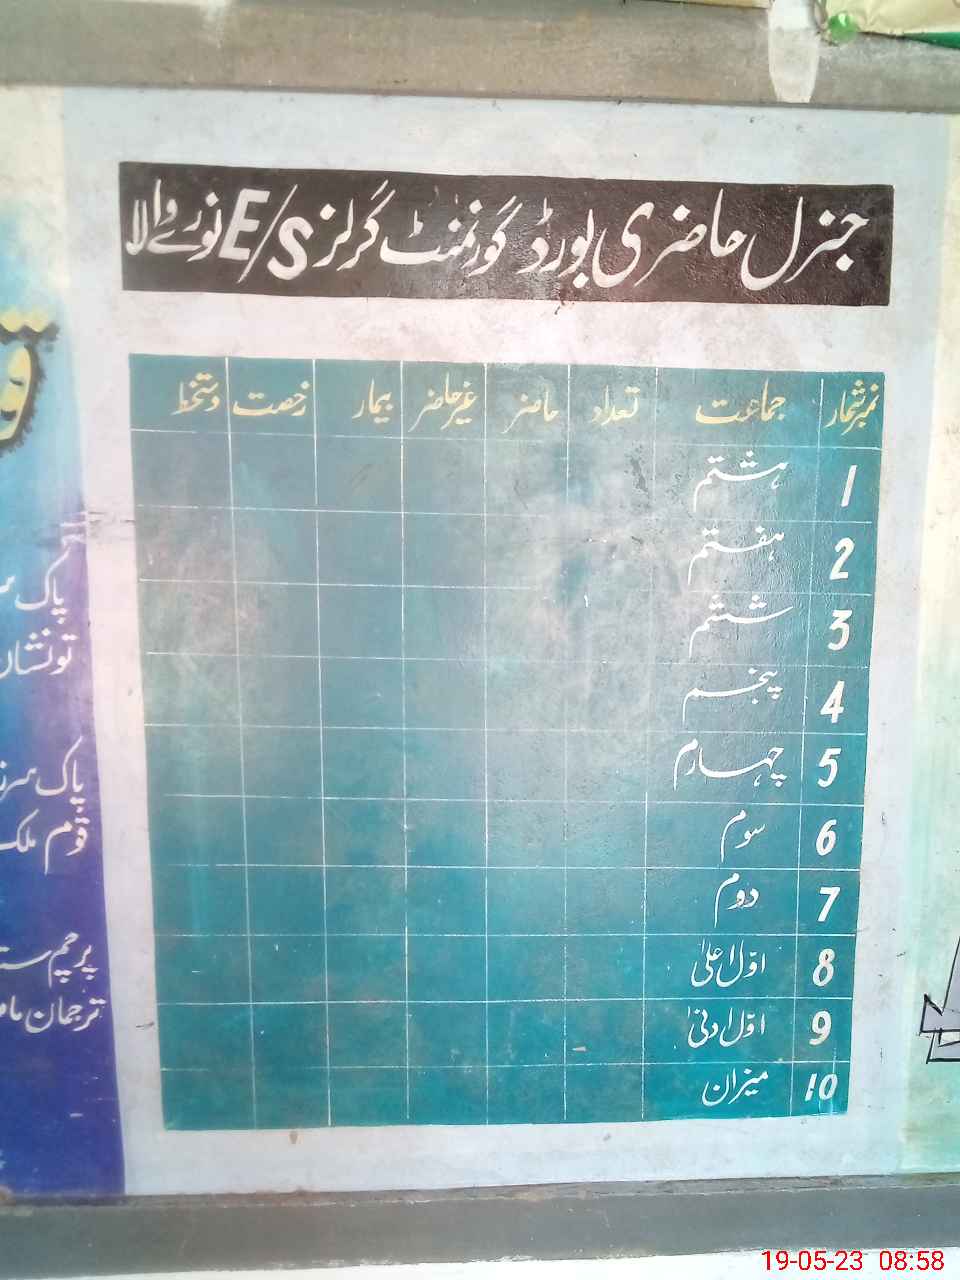 جنرل حاضری بورڈ گورنمنٹ گرلز E/S نورے والا
نمبرشمار جماعت تعداد حاضر غیرحاضر بیمار رخصت دستخط
1 ہشتم
2 ہفتم
3 ششم
4 پنجم
5 چہارم
6 سوم
7 دوم
8 اوّل اعلیٰ
9 اوّل ادنیٰ
10 میزان
پاک
تو نشان
پاک سرز
قوم ملک
پرچم
ترجمان
19-05-23 08:58